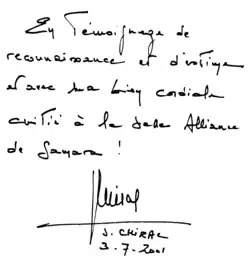 En Témoignage de
reconnaissance et d'estime
et avec ma bien cordiale
amitié à la Alliance
de Samara !
J. CHIRAC
3.7.2001